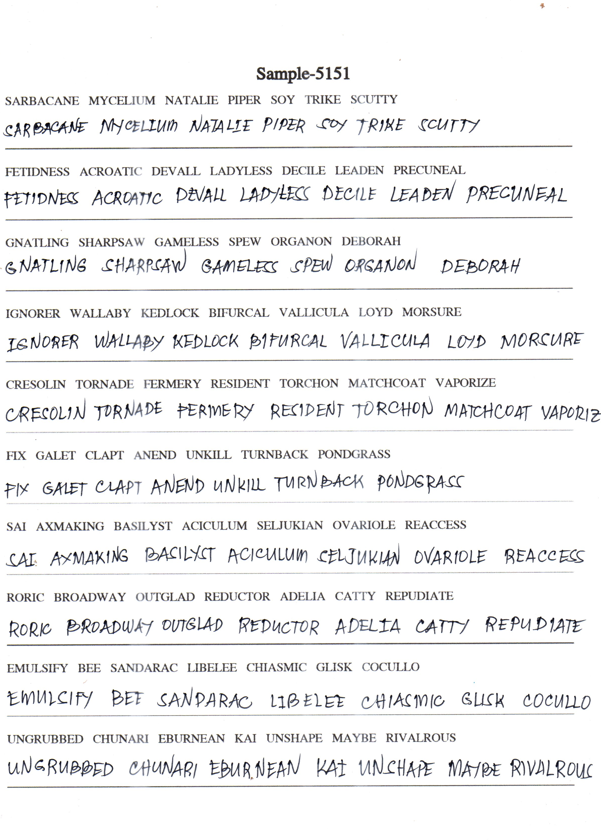 Sample-5151
SARBACANE MYCELIUM NATALIE PIPER SOY TRIKE SCUTTY
SARBACANE MYCELIUM NATALIE PIPER SOY TRIKE SCUTTY
FETIDNESS ACROATIC DEVALL LADYLESS DECILE LEADEN PRECUNEAL
FETIDNESS ACROATIC DEVALL LADYLESS DECILE LEADEN PRECUNEAL
GNATLING SHARPSAW GAMELESS SPEW ORGANON DEBORAH
GNATLING SHARPSAW GAMELESS SPEW ORGANON DEBORAH
IGNORER WALLABY KEDLOCK BIFURCAL VALLICULA LOYD MORSURE
IGNORER WALLABY KEDLOCK BIFURCAL VALLICULA LOYD MORSURE
CRESOLIN TORNADE FERMERY RESIDENT TORCHON MATCHCOAT VAPORIZE
CRESOLIN TORNADE FERMERY RESIDENT TORCHON MATCHCOAT VAPORIZ
FIX GALET CLAPT ANEND UNKILL TURNBACK PONDGRASS
FIX GALET CLAPT ANEND UNKILL TURNBACK PONDGRASS
SAI AXMAKING BASILYST ACICULUM SELJUKIAN OVARIOLE REACCESS
SAI AXMAKING BASILYST ACICULUM SELJUKIAN OVARIOLE REACCESS
RORIC BROADWAY OUTGLAD REDUCTOR ADELIA CATTY REPUDIATE
RORIC BROADWAY OUTGLAD REDUCTOR ADELIA CATTY REPUDIATE
EMULSIFY BEE SANDARAC LIBELEE CHIASMIC GLISK COCULLO
EMULSIFY BEE SANDARAC LIBELEE CHIASMIC GLISK COCULLO
UNGRUBBED CHUNARI EBURNEAN KAI UNSHAPE MAYBE RIVALROUS
UNGRUBBED CHUNARI EBURNEAN KAI UNSHAPE MAYBE RIVALROUS